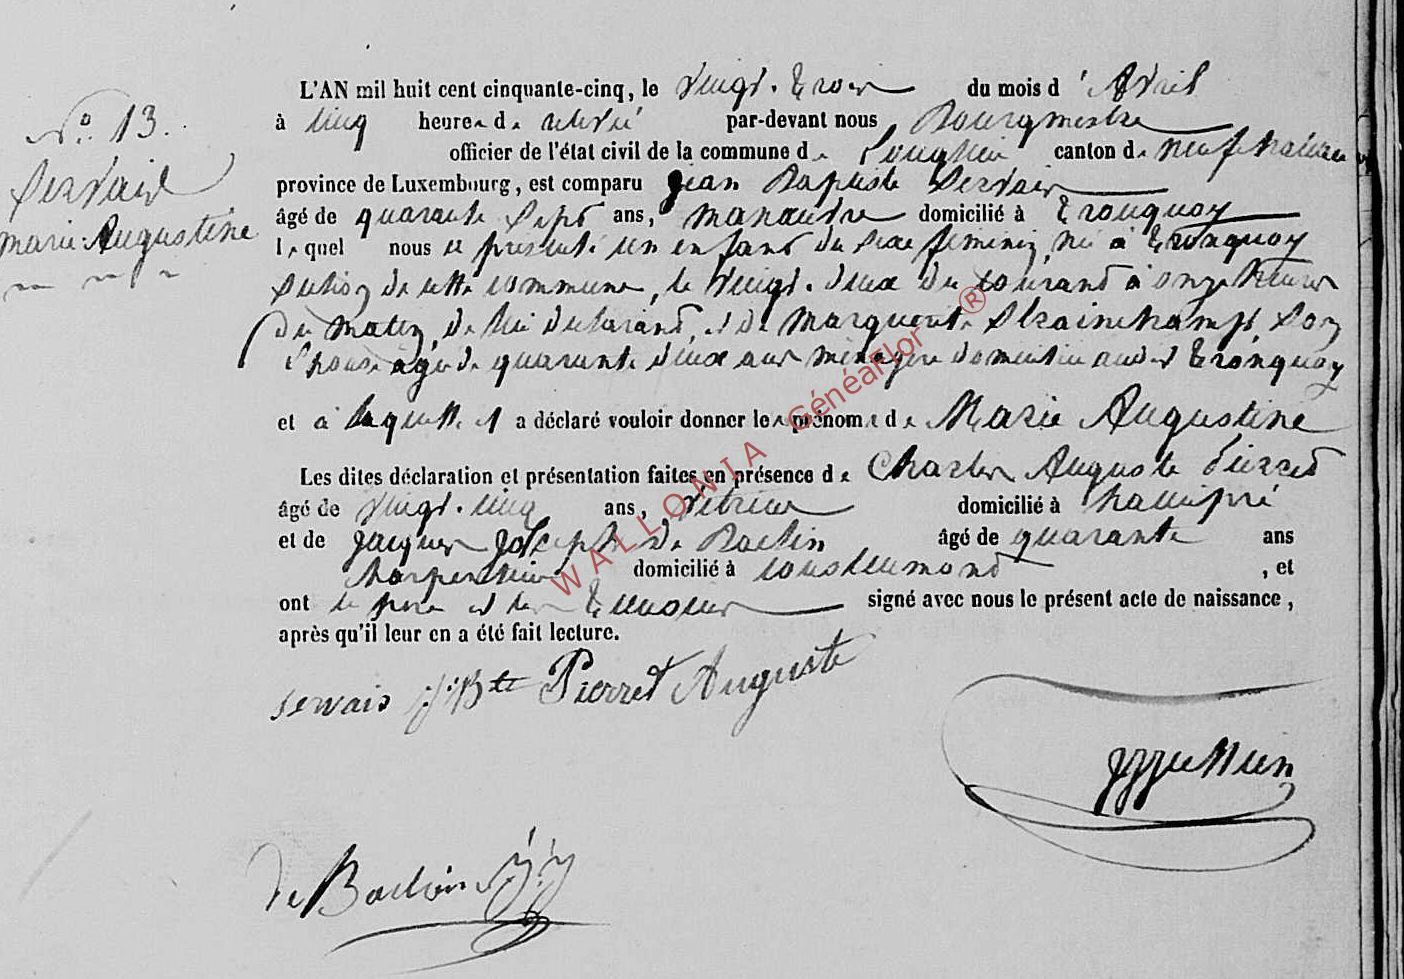 N° 13.
Servais
Marie Augustine
L'AN mil huit cent cinquante-cinq, le vingt-trois du mois d'Avril
à cinq heures de relevé par-devant nous Bourgmestre
officier de l'état civil de la commune de Longlier canton de neufchateau
province de Luxembourg, est comparu Jean Baptiste Servais
âgé de quarante Sept ans, manœuvre domicilié à Tronquoy
lequel nous a présenté un enfant du sexe féminin, né à Tronquoy
Section de cette commune, le vingt-deux du courant à onze heures
du matin, de lui déclarant, et de Marguerite Strainchamps, Son
Epouse agée de quarante deux ans ménagère domiciliée audit Tronquoy
et à laquelle il a déclaré vouloir donner les prénoms de Marie Augustine
Les dites déclaration et présentation faites en présence de Charles Auguste Pierret
âgé de vingt-cinq ans, vitrier domicilié à hamipré
et de Jacques Joseph de Barsin âgé de quarante ans
charpentier domicilié à , et
ont le père et les témoins signé avec nous le présent acte de naissance,
après qu'il leur en a été fait lecture.
servais j Bte Pierret Auguste
de J. J.
WALLONIA GénéaFlor ®